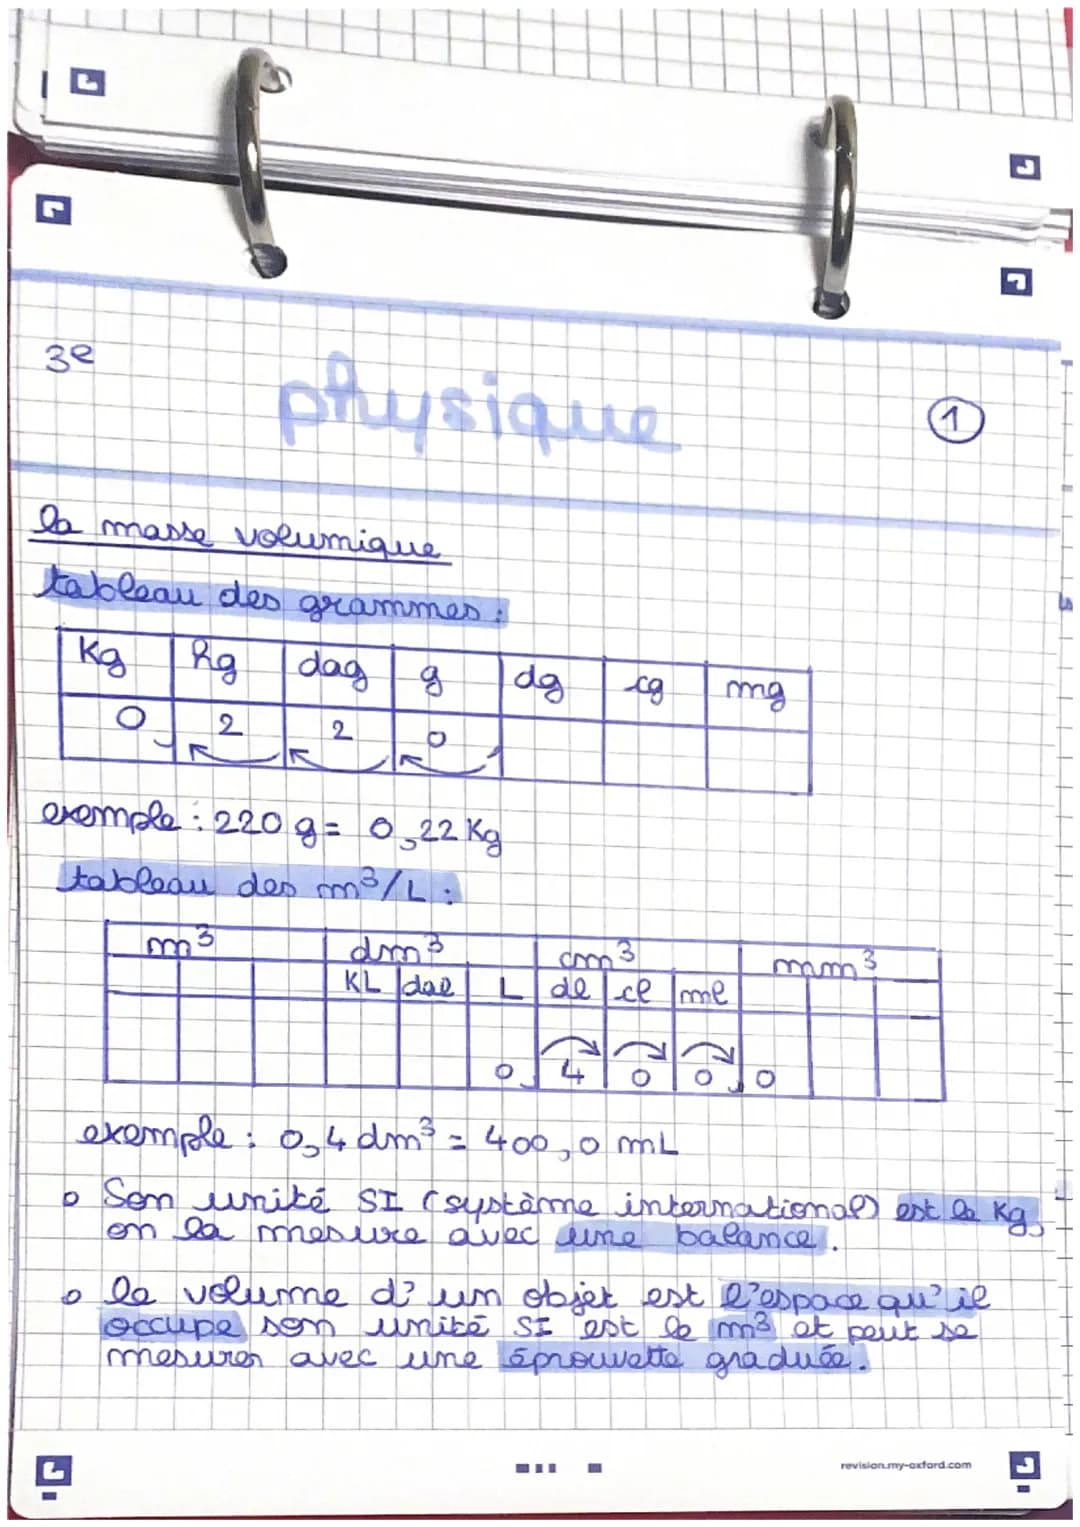 3e
physique
1
la masse volumique
tableau des grammes :
Kg hg dag g dg cg mg
0, 2 2 0
exemple : 220 g = 0,22 Kg
tableau des m³/L :
m³ dm³ cm³ mm³
KL dal L dl cl ml
0, 4 0 0, 0
exemple : 0,4 dm³ = 400,0 mL
Son unité SI (système international) est le Kg,
on la mesure avec une balance.
le volume d'un objet est l'espace qu'il
occupe son unité SI est le m³ et peut se
mesurer avec une éprouvette graduée.
revision.my-oxford.com